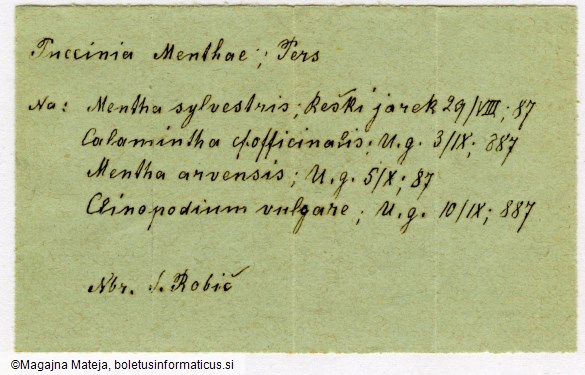 Puccinia Menthae; Pers
Na: Mentha sylvestris; Reški jarek 29/VIII; 87
Calamintha officinalis; U.g. 3/IX; 887
Mentha arvensis; U.g. 5/X; 87
Clinopodium vulgare; U.g. 10/IX; 887
Nbr. S. Robič
©Magajna Mateja, boletusinformaticus.si